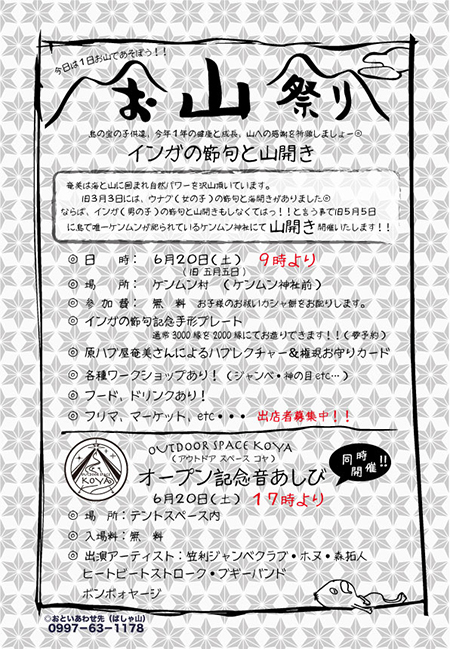 今日は１日お山であそぼう！！
お山祭り
島の宝の子供達、今年１年の健康と成長、山への感謝を祈願しましょー◎
インガの節句と山開き
奄美は海と山に囲まれ自然パワーを沢山頂いています。
旧3月3日には、ウナグ(女の子)の節句と海開きがありました◎
ならば、インガ(男の子)の節句と山開きもしなくてはっ！！と言う事で旧5月5日
に島で唯一ケンムンが祀られているケンムン神社にて山開き開催いたします！！
◎ 日　時： 6月20日(土)　9時より
(旧 五月五日)
◎ 場　所： ケンムン村 (ケンムン神社前)
◎ 参加費： 無　料　お子様のお祓いカシャ餅をお配りします。
◎ インガの節句記念手形プレート
通常3000縁を2000縁にてお造りできます！！(要予約)
◎ 原ハブ屋奄美さんによるハブレクチャー＆権現お守りカード
◎ 各種ワークショップあり！ (ジャンベ・神の目etc…)
◎ フード、ドリンクあり！
◎ フリマ、マーケット、etc・・・ 出店者募集中！！
OUTDOOR SPACE KOYA
OUTDOOR SPACE KOYA
(アウトドア スペース コヤ)
オープン記念音あしび
同時開催!!
6月20日(土) 17時より
◎ 場　所：テントスペース内
◎ 入場料：無　料
◎ 出演アーティスト：笠利ジャンベクラブ・ホヌ・森拓人
ヒートビートストローク・ブギーバンド
ボンボォヤージ
◎おといあわせ先（ばしゃ山）
0997-63-1178